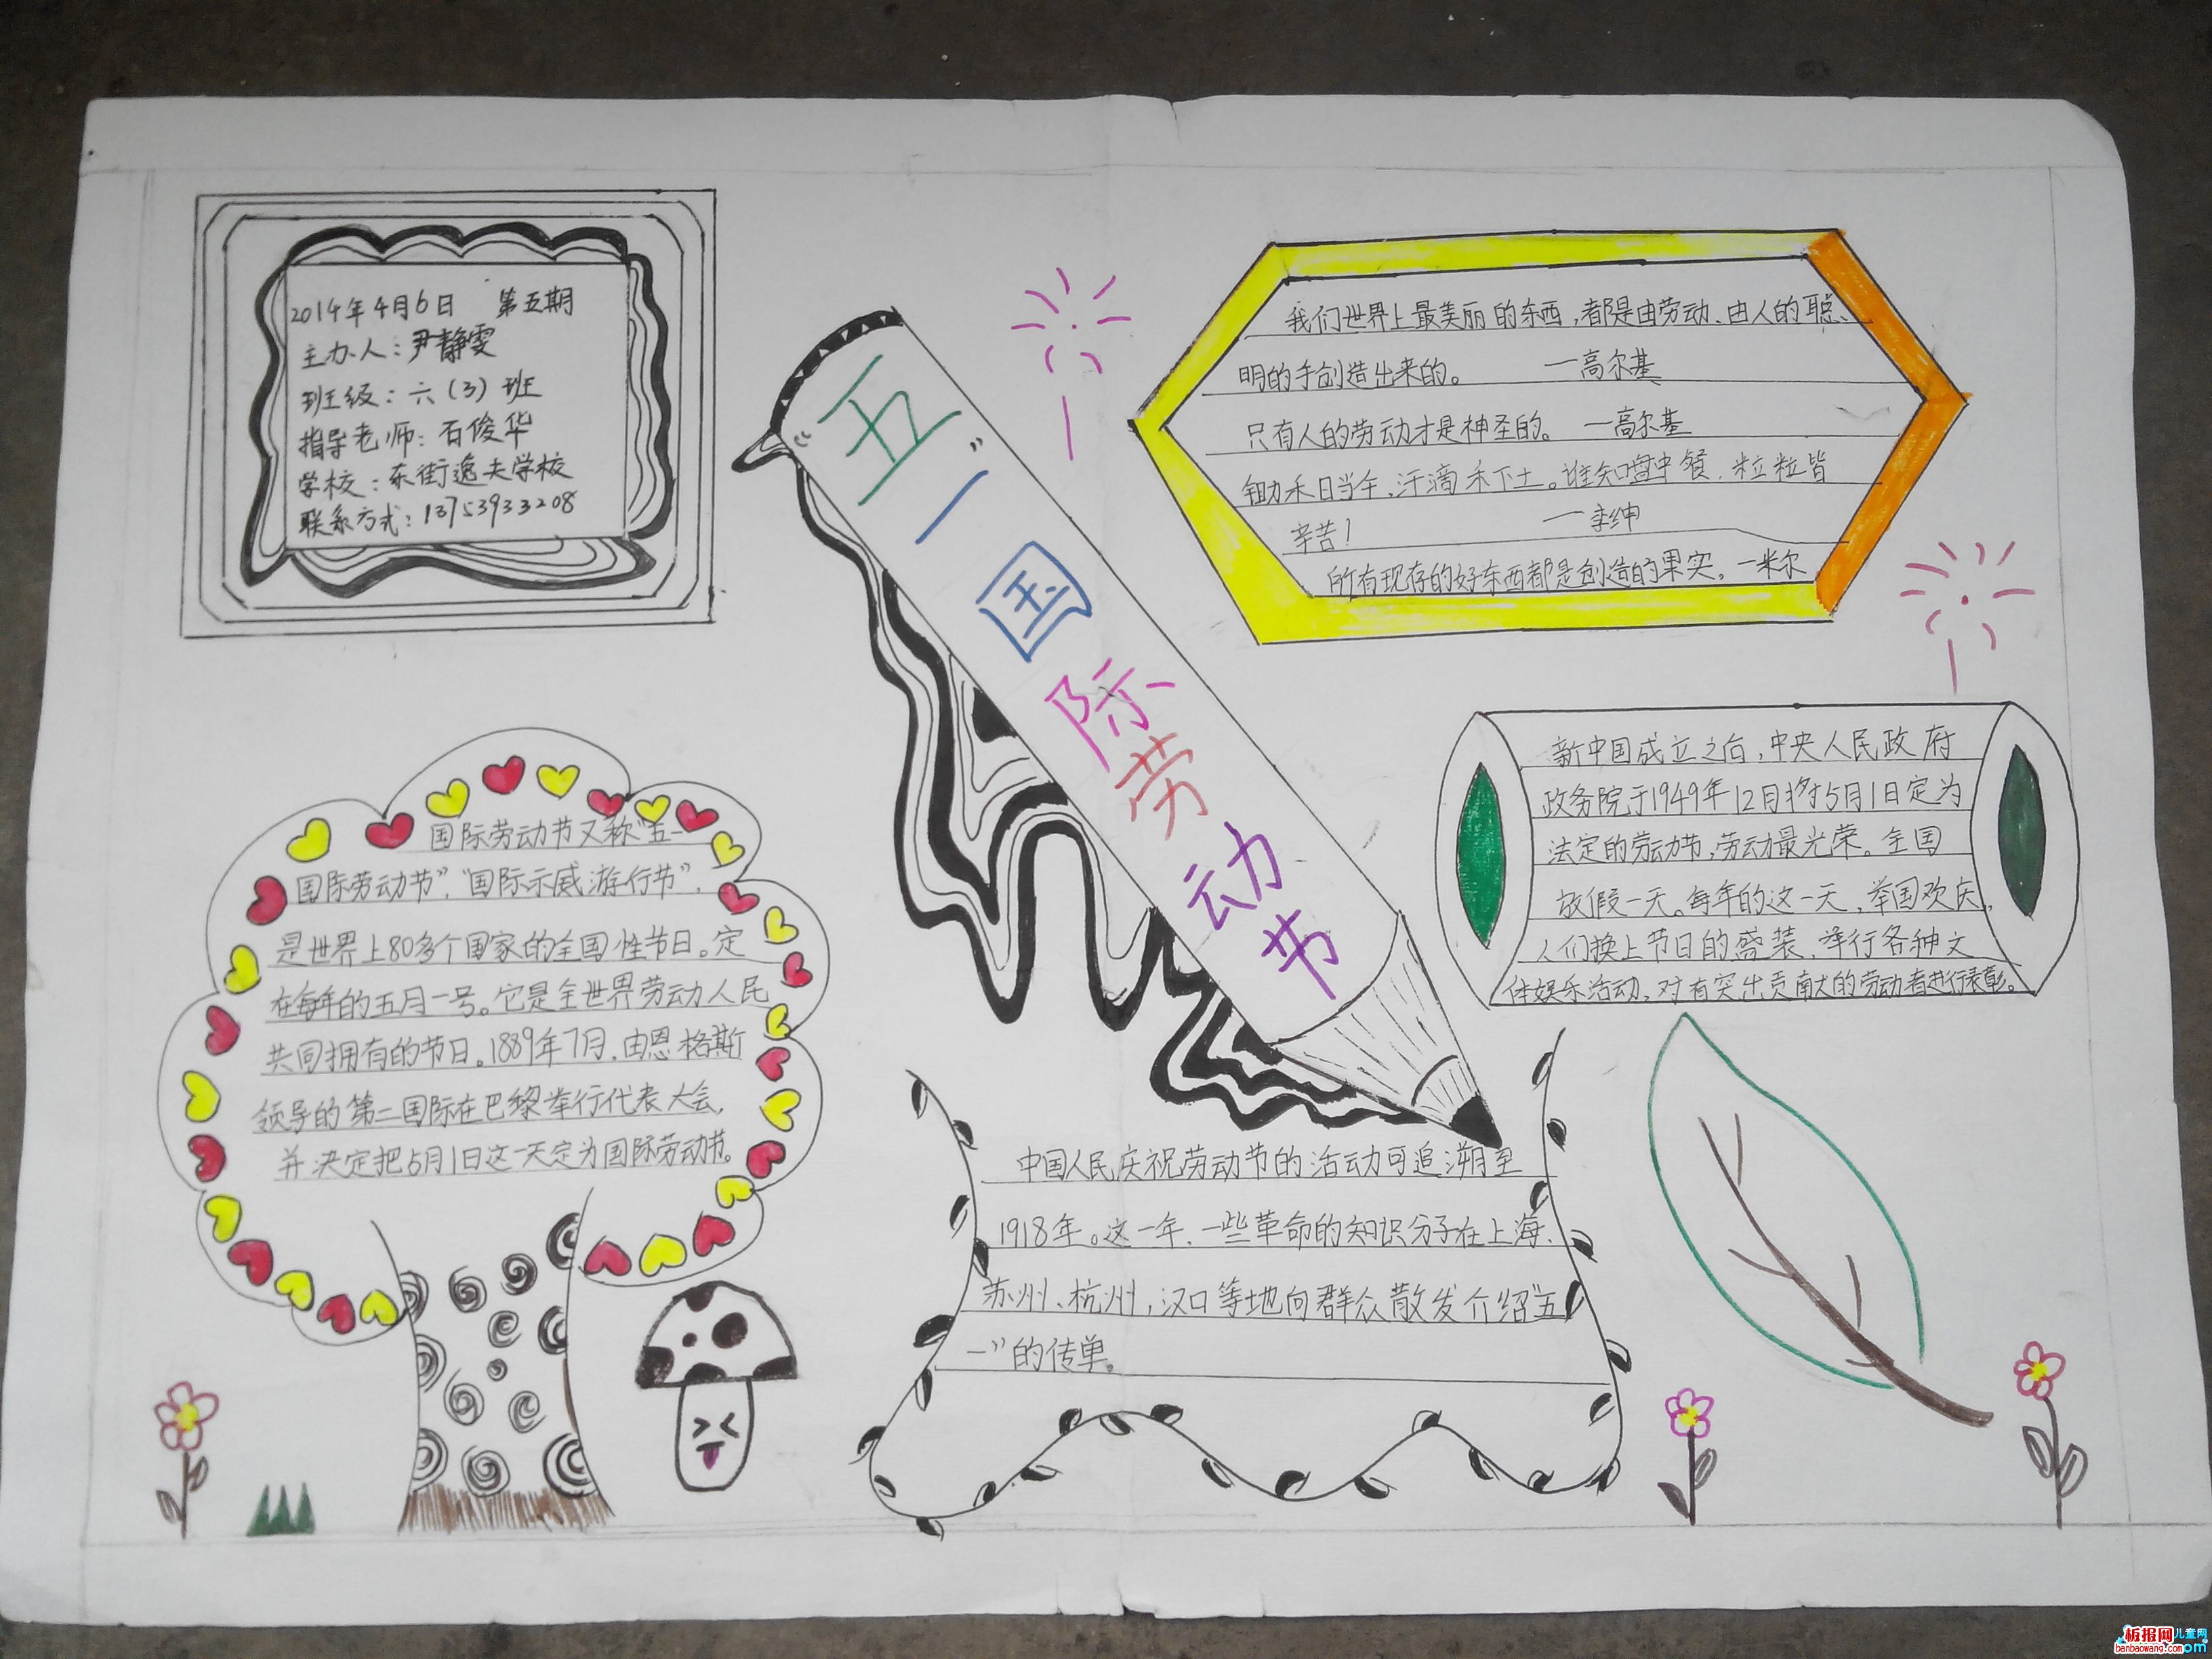 2014年4月6日 第五期
主办人：尹静雯
班级：六（3）班
指导老师：石俊华
学校：东街逸夫学校
联系方式：13753933208
“五一”
国际劳动节
我们世界上最美丽的东西，都是由劳动、由人的聪
明的手创造出来的。 —高尔基
只有人的劳动才是神圣的。 —高尔基
锄禾日当午，汗滴禾下土。谁知盘中餐，粒粒皆
辛苦！ —李绅
所有现存的好东西都是创造的果实。—米尔
国际劳动节又称“五一
国际劳动节”，“国际示威游行节”，
是世界上80多个国家的全国性节日。定
在每年的五月一号。它是全世界劳动人民
共同拥有的节日。1889年7月，由恩格斯
领导的第二国际在巴黎举行代表大会，
并决定把5月1日这一天定为国际劳动节。
新中国成立之后，中央人民政府
政务院于1949年12月将5月1日定为
法定的劳动节，劳动最光荣。全国
放假一天。每年的这一天，举国欢庆，
人们换上节日的盛装，举行各种文
体娱乐活动，对有突出贡献的劳动者进行表彰。
中国人民庆祝劳动节的活动可追溯至
1918年。这一年，一些革命的知识分子在上海、
苏州、杭州，汉口等地向群众散发介绍“五
一”的传单。
板报网
儿童网
banbaowang.com